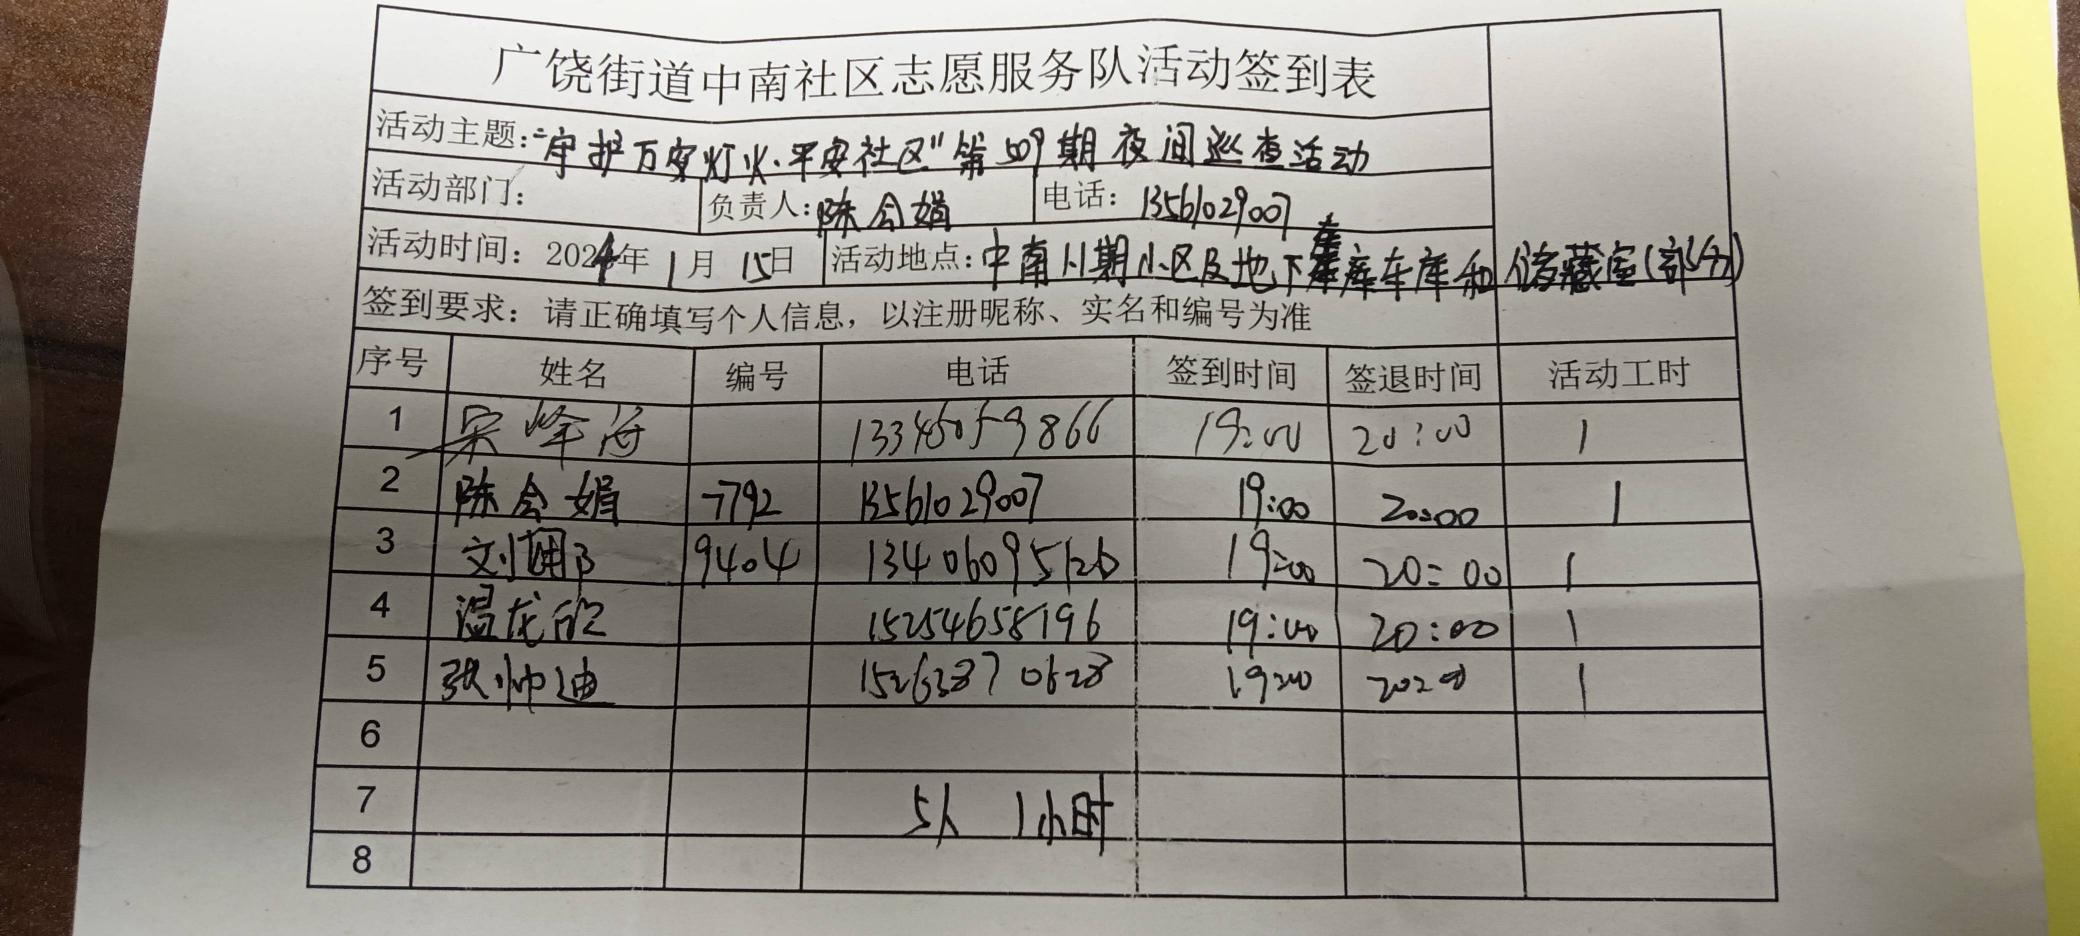 广饶街道中南社区志愿服务队活动签到表
活动主题:“守护万家灯火·平安社区”第509期夜间巡查活动
活动部门: 负责人:陈会娟 电话:13561029007
活动时间:2024年1月15日 活动地点:中南川期小区及地下车库车库和储藏室(部分)
签到要求:请正确填写个人信息,以注册昵称、实名和编号为准
序号 姓名 编号 电话 签到时间 签退时间 活动工时
1 宋峰海 13345059866 19:00 20:00 1
2 陈会娟 7792 13561029007 19:00 20:00 1
3 9404 13406095626 19:00 20:00 1
4 温龙 15254658196 19:00 20:00 1
5 张帅迪 15263870628 19:00 20:00 1
6
7 5人 1小时
8